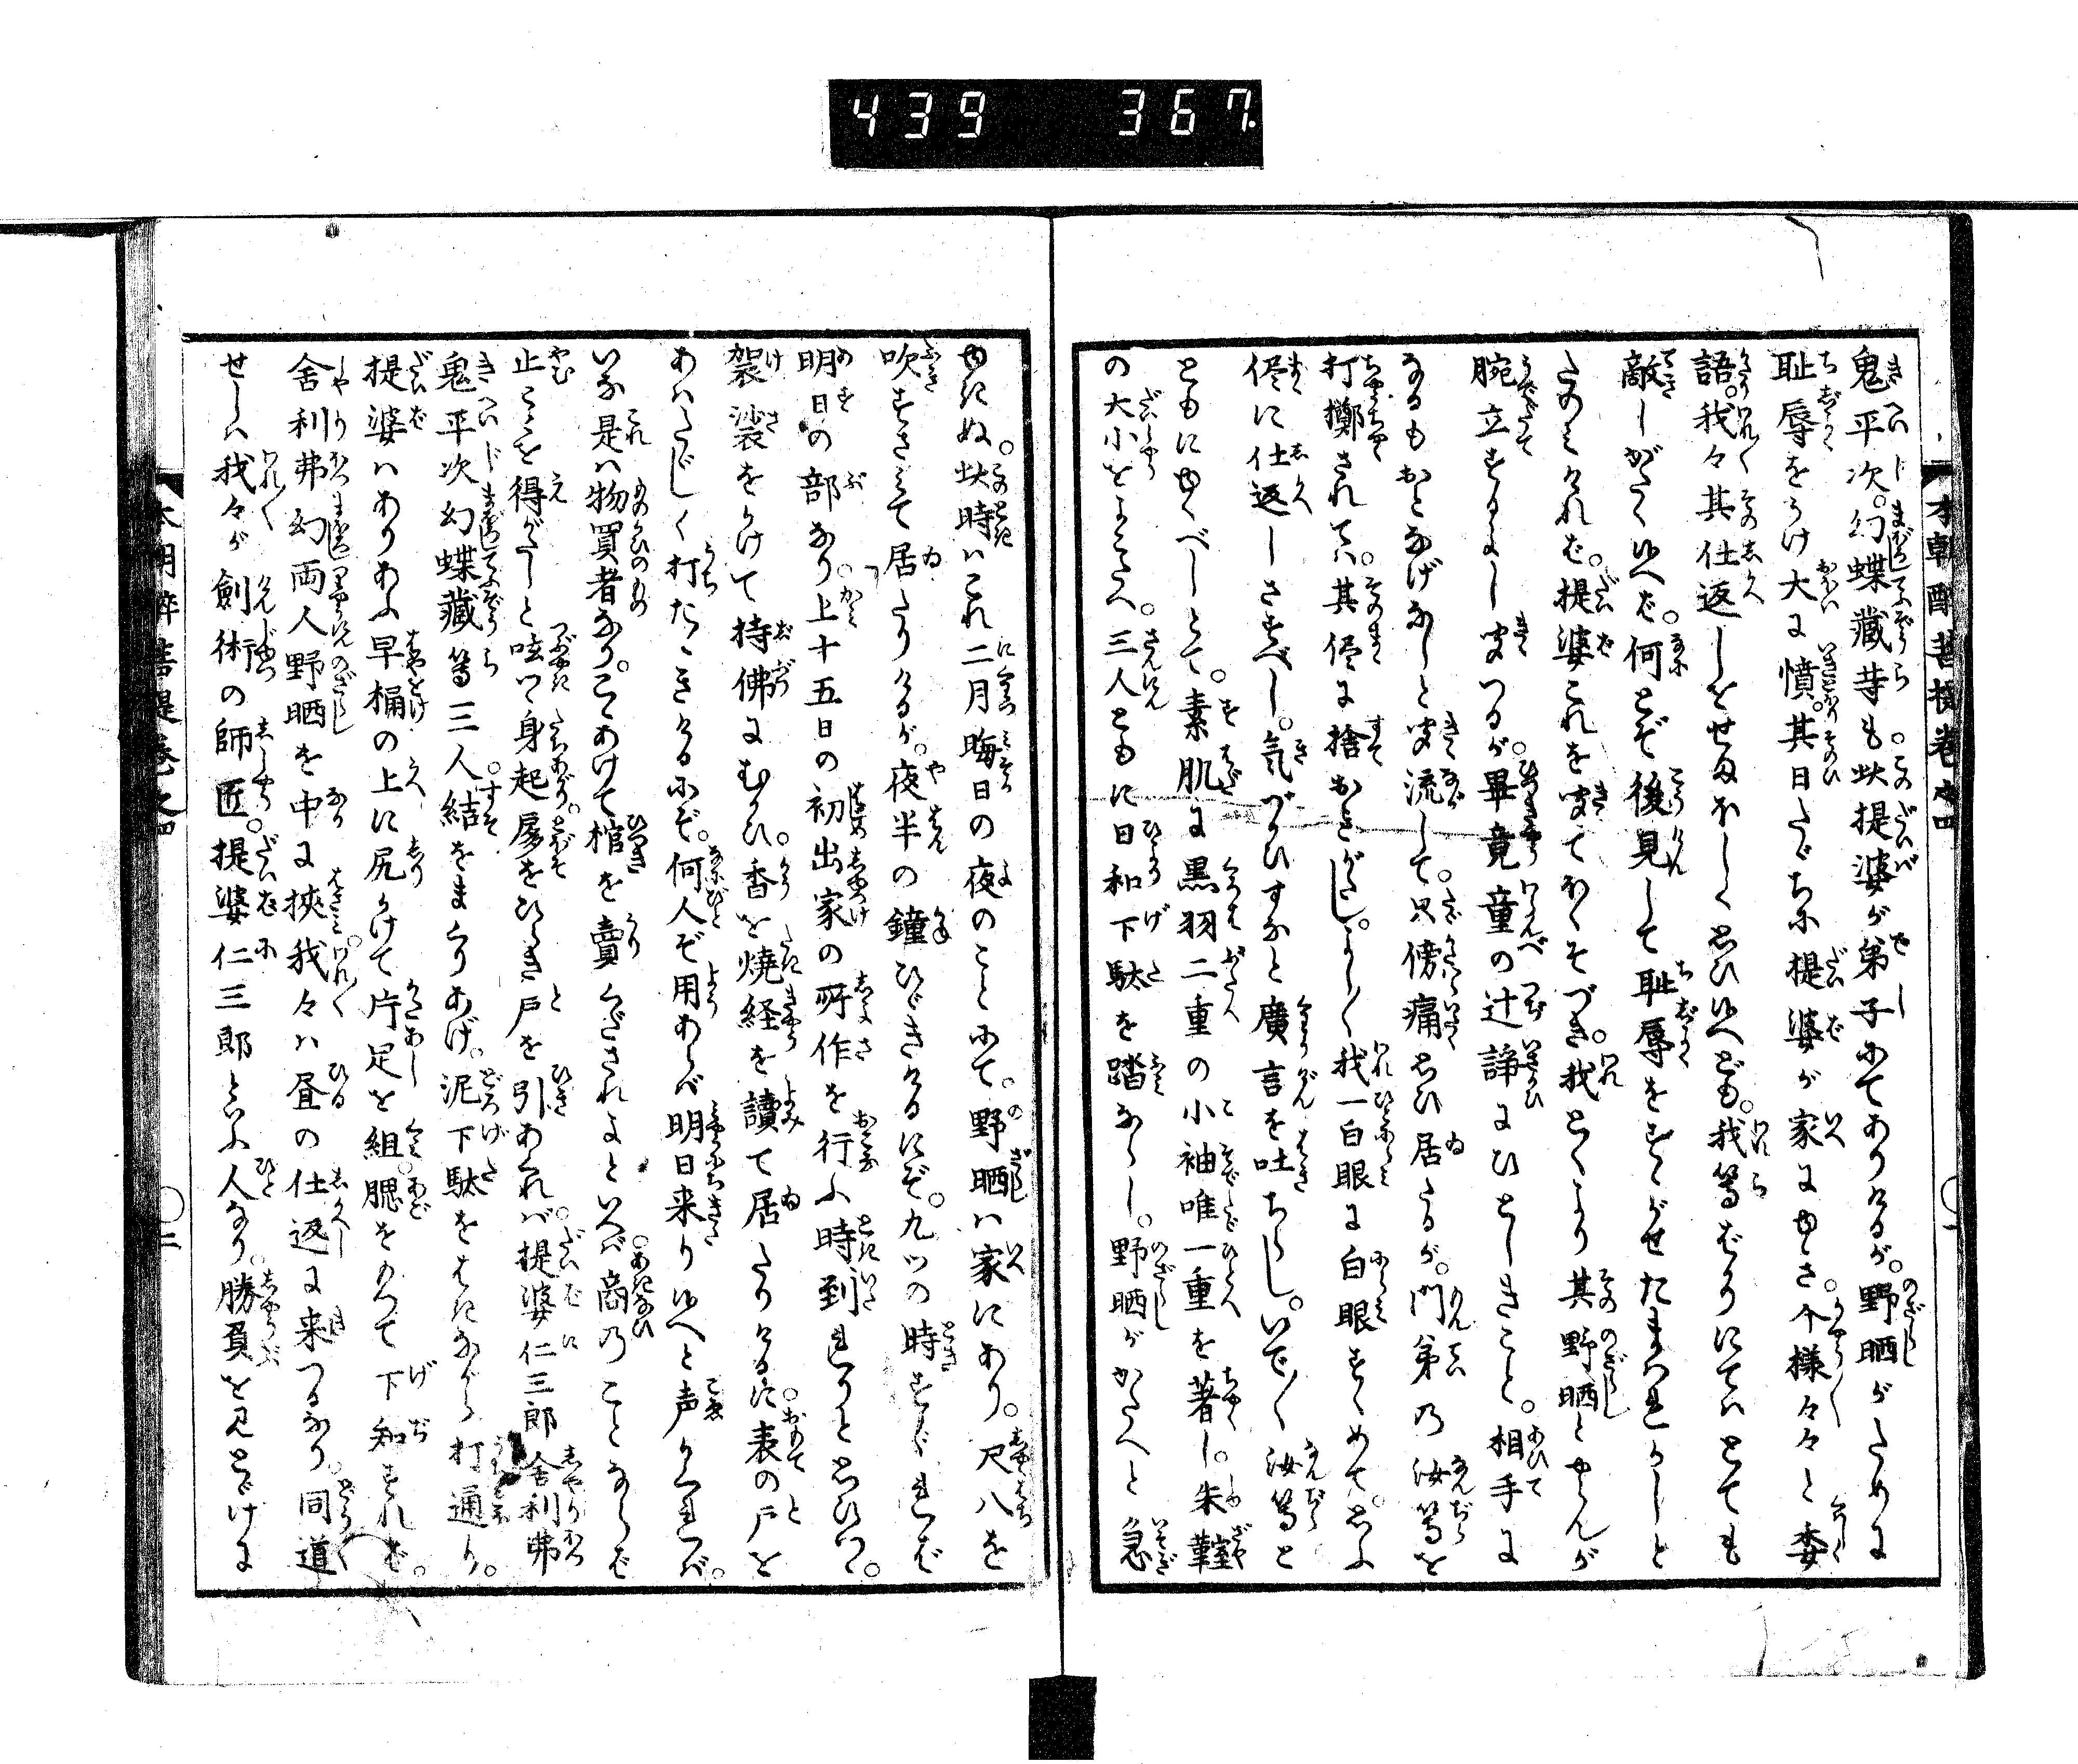 439 367.
本朝酔菩提巻之四
鬼平次。幻蝶蔵等も此提婆が弟子にてありけるが。野晒がために
恥辱をうけ大に憤。其日たゞちに提婆が家にゆき。个様々々と委
語。我々其仕返しをせまほしく思ひ候へども。我等ばかりにてはとても
敵しがたく候へば。何とぞ後見して恥辱をすゝがせたまはれかしと
たのみければ。提婆これを聞てうちうなづき。我とくより其野晒とやらんが
腕立するよし聞つるが。畢竟童の辻諍にひとしきこと。相手に
なるもおとなげなしと聞流して。只傍痛思ひ居たるが。門弟乃汝等を
打擲されては。其侭に捨おきがたし。よし〳〵我一白眼に白眼すくめて。思ふ
侭に仕返しさすべし。気づかひすなと廣言を吐ちらし。いで〳〵汝等と
ともにゆくべしとて。素肌に黒羽二重の小袖唯一重を著し。朱鞘
の大小をよこたへ。三人ともに日和下駄を踏ならし。野晒がかたへと急
ゆきぬ。此時はこれ二月晦日の夜のことにて。野晒は家にあり。尺八を
吹すさみて居たりけるが。夜半の鐘ひゞきけるにぞ。九ツの時すぐれば
明日の部なり。上十五日の初出家の所作を行ふ時到れりと思ひつゝ。
袈裟をかけて持佛にむかひ。香を焼経を讀て居たりけるに。表の戸を
あはたゞしく打たゝきけるにぞ。何人ぞ用あらば明日来り候へと声かくれば。
いな是は物買者なり。こゝあけて棺を賣くだされよといへば。商乃ことならば
止ことを得がたしと呟つゝ身起。扉をひらき戸を引あくれば。提婆仁三郎舎利弗
鬼平次幻蝶蔵等三人。裾をまくりあげ。泥下駄をはきながら打通り。
提婆はありあふ早桶の上に尻かけて片足を組。腮をもつて下知すれば。
舎利弗幻両人野晒を中に挟。我々は昼の仕返に来つるなり。同道
せしは我々が劍術の師匠。提婆仁三郎といふ人なり。勝負を見とゞけに
本朝酔菩提巻之四
〇二